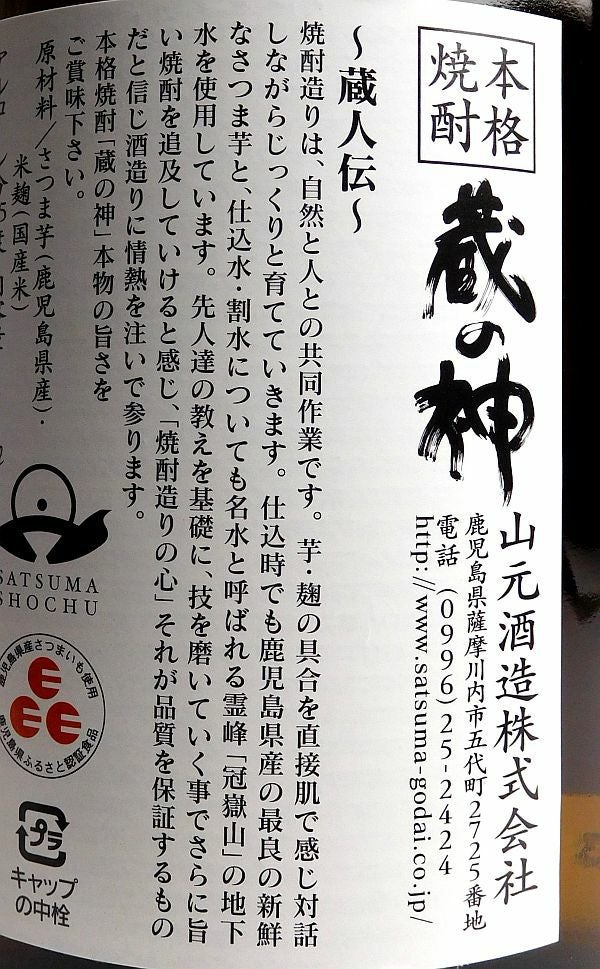 本格
焼酎
蔵の神
山元酒造株式会社
鹿児島県薩摩川内市五代町2725番地
電話 (0996)25-2424
http://www.satsuma-godai.co.jp/
～蔵人伝～
焼酎造りは、自然と人との共同作業です。芋・麹の具合を直接肌で感じ対話
しながらじっくりと育てていきます。仕込時でも鹿児島県産の最良の新鮮
なさつま芋と、仕込水・割水についても名水と呼ばれる霊峰「冠嶽山」の地下
水を使用しています。先人達の教えを基礎に、技を磨いていく事でさらに旨
い焼酎を追及していけると感じ、「焼酎造りの心」それが品質を保証するもの
だと信じ酒造りに情熱を注いで参ります。
本格焼酎「蔵の神」本物の旨さを
ご賞味下さい。
原材料/さつま芋(鹿児島県産)・
米麹(国産米)
SATSUMA
SHOCHU
鹿児島県産さつまいも使用
鹿児島県ふるさと認証食品
プラ
キャップ
の中栓